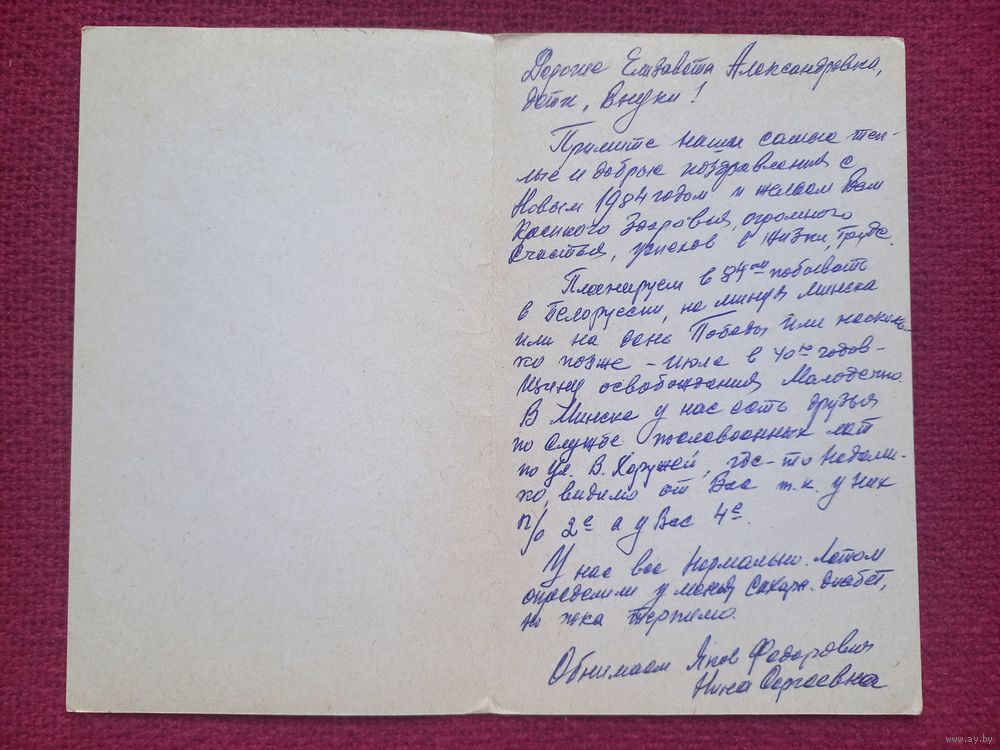 Дорогие Елизавета Александровна,
дети, внуки!
Примите наши самые теп-
лые и добрые поздравления с
Новым 1984 годом и желаем Вам
крепкого здоровья, огромного
счастья, успехов в жизни, труде.
Планируем в 84ом побывать
в Белоруссии, не минуя Минска
или на день Победы или несколь-
ко позже - июле в 40ю годов-
щину освобождения Молодечно.
В Минске у нас есть друзья
по службе послевоенных лет
по ул. В. Хоружей, где-то недале-
ко, видимо от Вас т.к. у них
п/о 2е а у Вас 4е.
У нас все нормально. Летом
определили у меня сахарн. диабет,
но пока терпимо.
Обнимаем Яков Федорович
Нина Сергеевна
www.ay.by